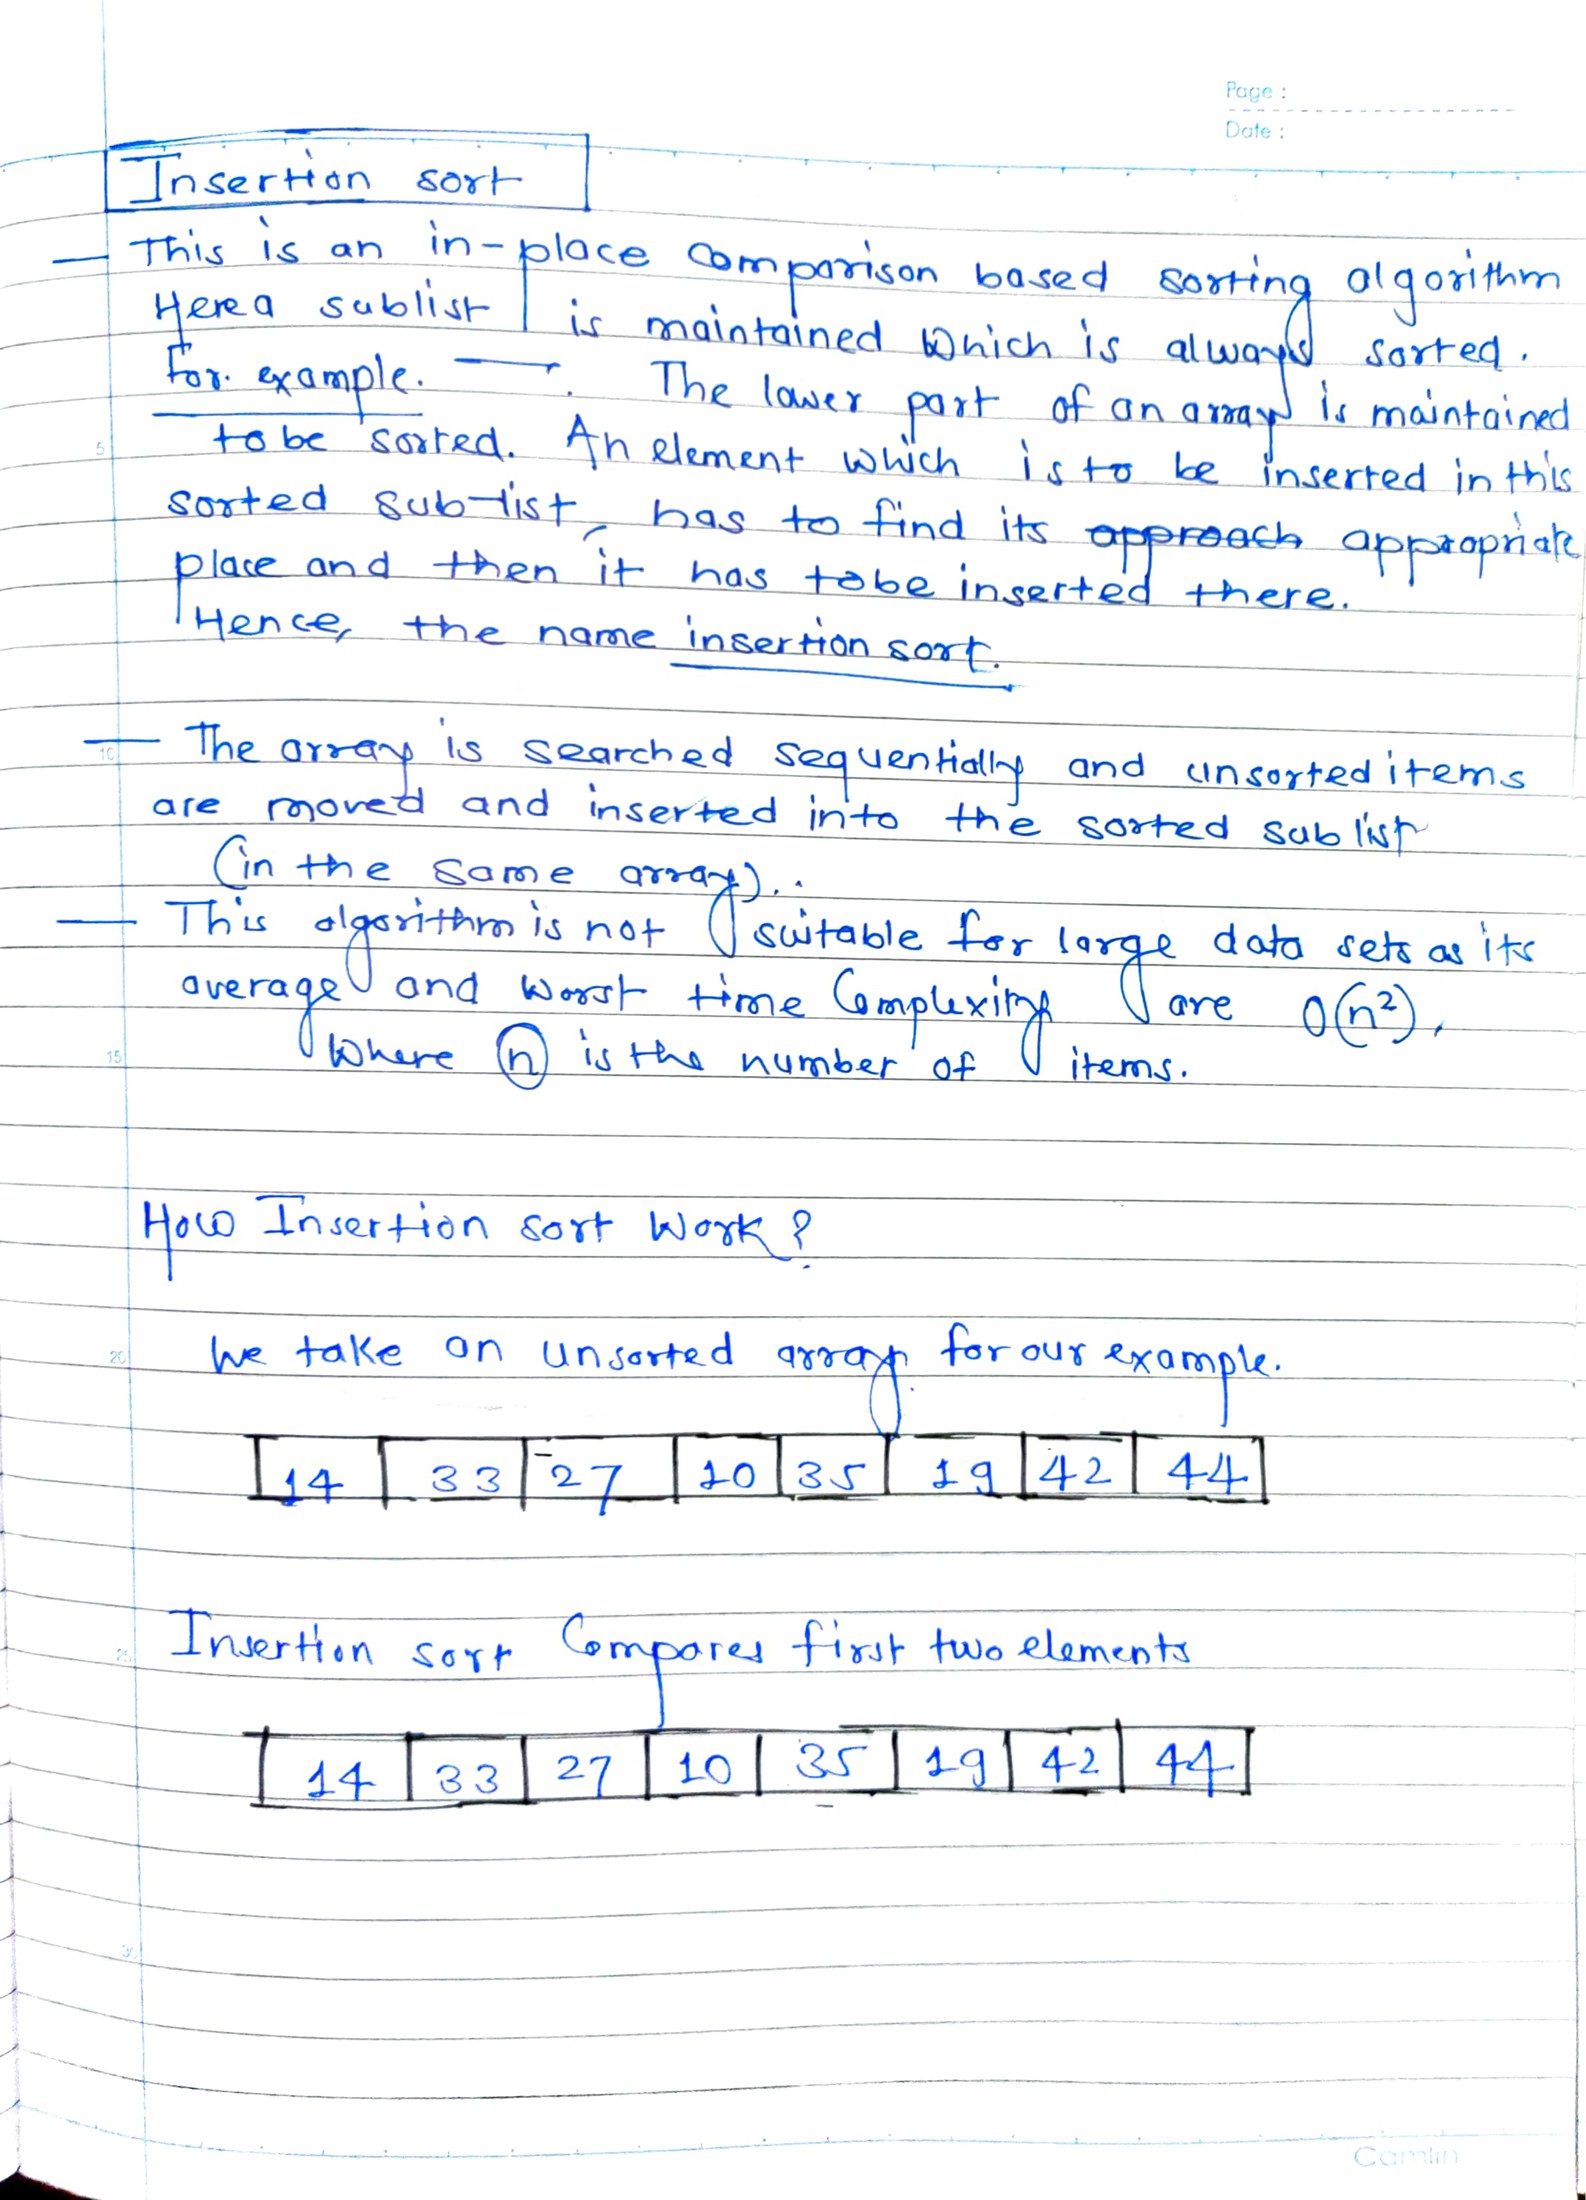 Page :
Date :
Insertion sort
— This is an in-place comparison based sorting algorithm
Here a sublist is maintained which is always sorted.
For. example. — . The lower part of an array is maintained
to be sorted. An element which is to be inserted in this
sorted sub-list, has to find its approach appropriate
place and then it has to be inserted there.
Hence, the name insertion sort.
— The array is searched sequentially and unsorted items
are moved and inserted into the sorted sub list
(in the same array)..
— This algorithm is not suitable for large data sets as its
average and worst time Complexity are O(n²),
Where n is the number of items.
How Insertion sort Work ?
We take an unsorted array for our example.
14 33 27 10 35 19 42 44
Insertion sort Compares first two elements
14 33 27 10 35 19 42 44
5
10
15
20
25
30
Camlin